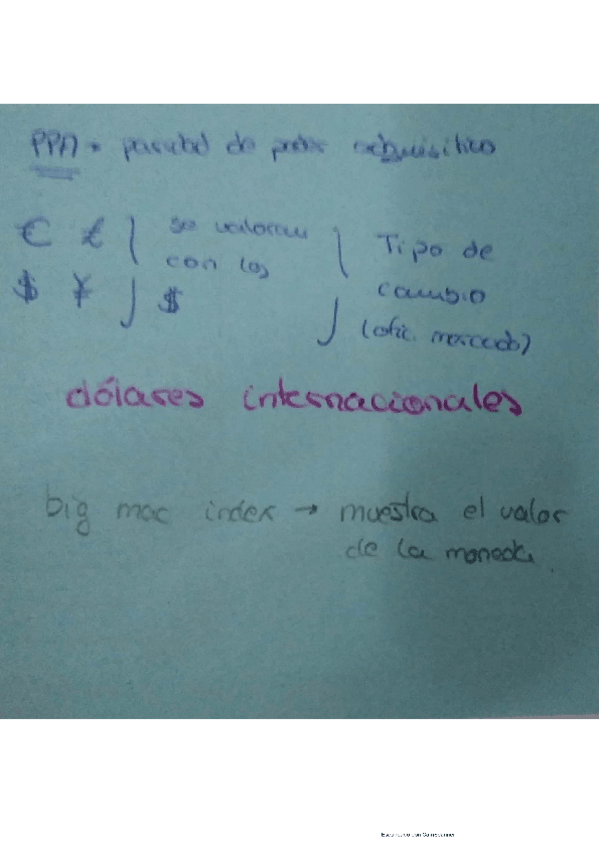 PPA • paridad de poder adquisitivo
€ £ se valoran Tipo de
con los cambio
$ ¥ $ (ofic. mercado)
dólares internacionales
big mac index → muestra el valor
de la moneda.
Escaneado con CamScanner